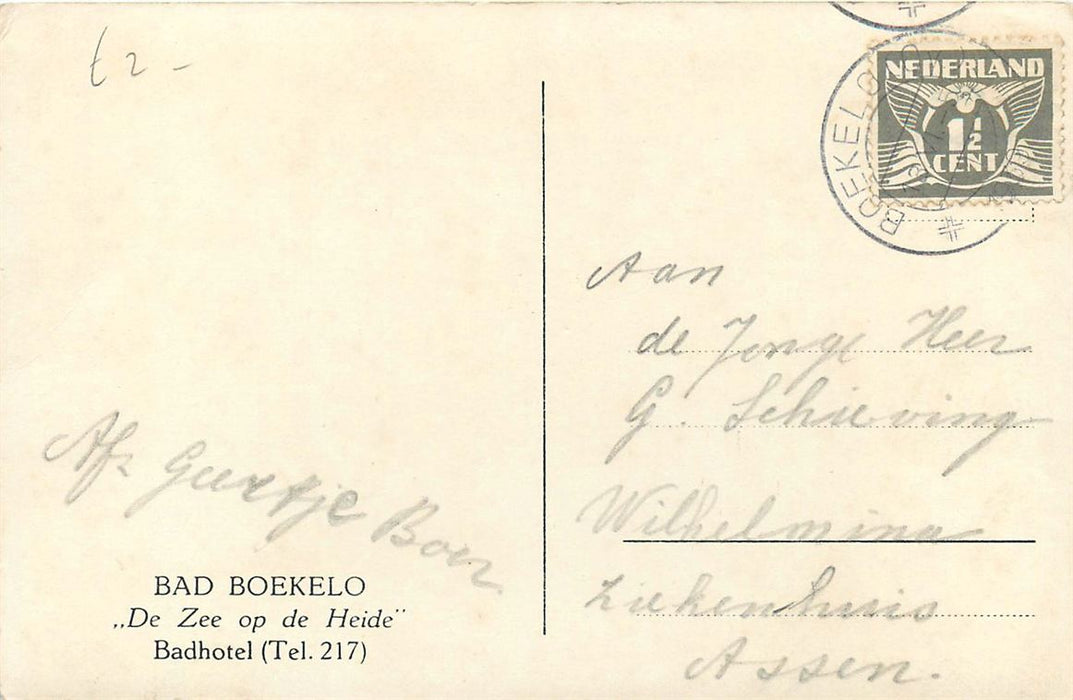 t2-
NEDERLAND
1½
CENT
BOEKELO
Aan
de Jonge Heer
G. Schieving
Wilhelmina
Ziekenhuis
Assen.
Af. Geertje Boer
BAD BOEKELO
„De Zee op de Heide”
Badhotel (Tel. 217)